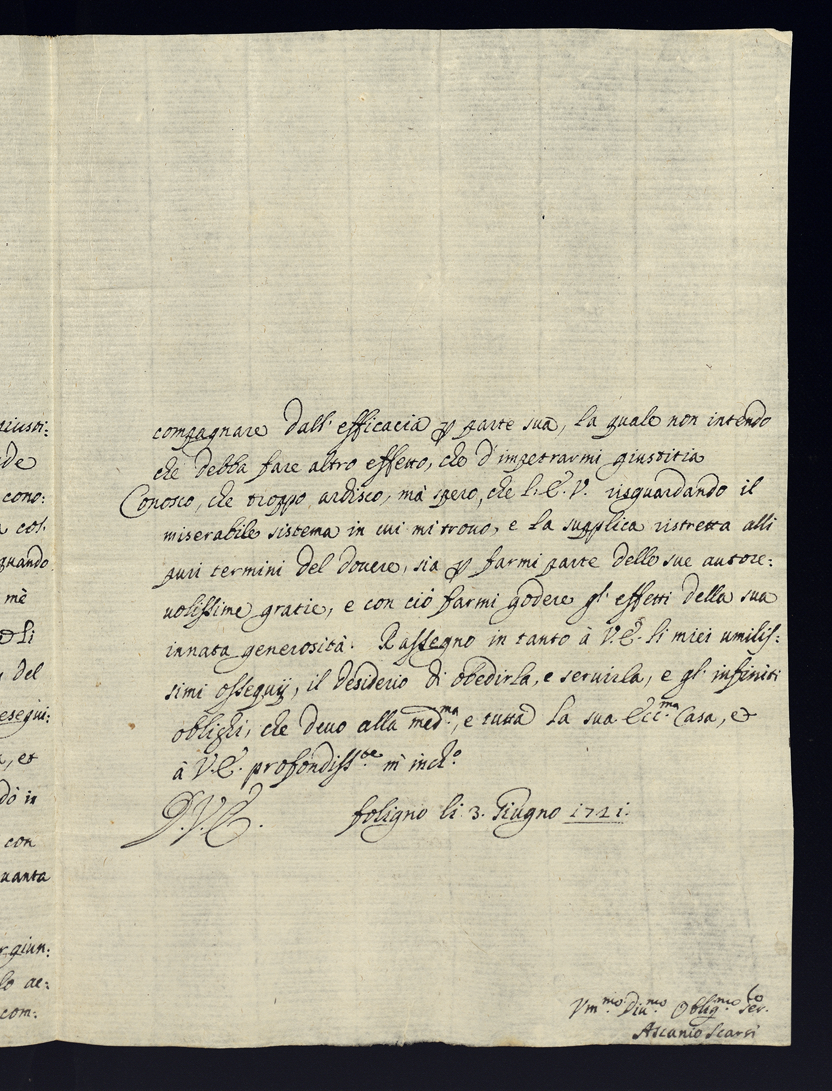 giusti:
de
cono:
a cot
quando
mè
et li
del
esegui:
, et
dò in
con
uanta
r giun:
lo ac:
com:
compagnare dall' efficacia p parte sua, la quale non intendo
che debba fare altro effetto, che d'impetrarmi giustitia
Conosco, che troppo ardisco, mà spero, che l'E.V. risguardando il
miserabile sistema in cui mi trovo, e la supplica ristretta alli
puri termini del dovere, sia p farmi parte delle sue autore:
volissime gratie, e con ciò farmi godere gl' effetti della sua
innata generosità. Rassegno in tanto à V.E. li miei umilis:
simi ossequij, il desiderio di obedirla, e servirla, e gl' infiniti
oblighi, che devo alla med.ma, e tutta la sua Ecc.ma Casa, et
à V.E. profondiss.te m'inch.o
D.V.E. foligno li 3. Giugno 1721.
Um.mo Diu.mo Oblig.mo Ser.
Ascanio Scarsi